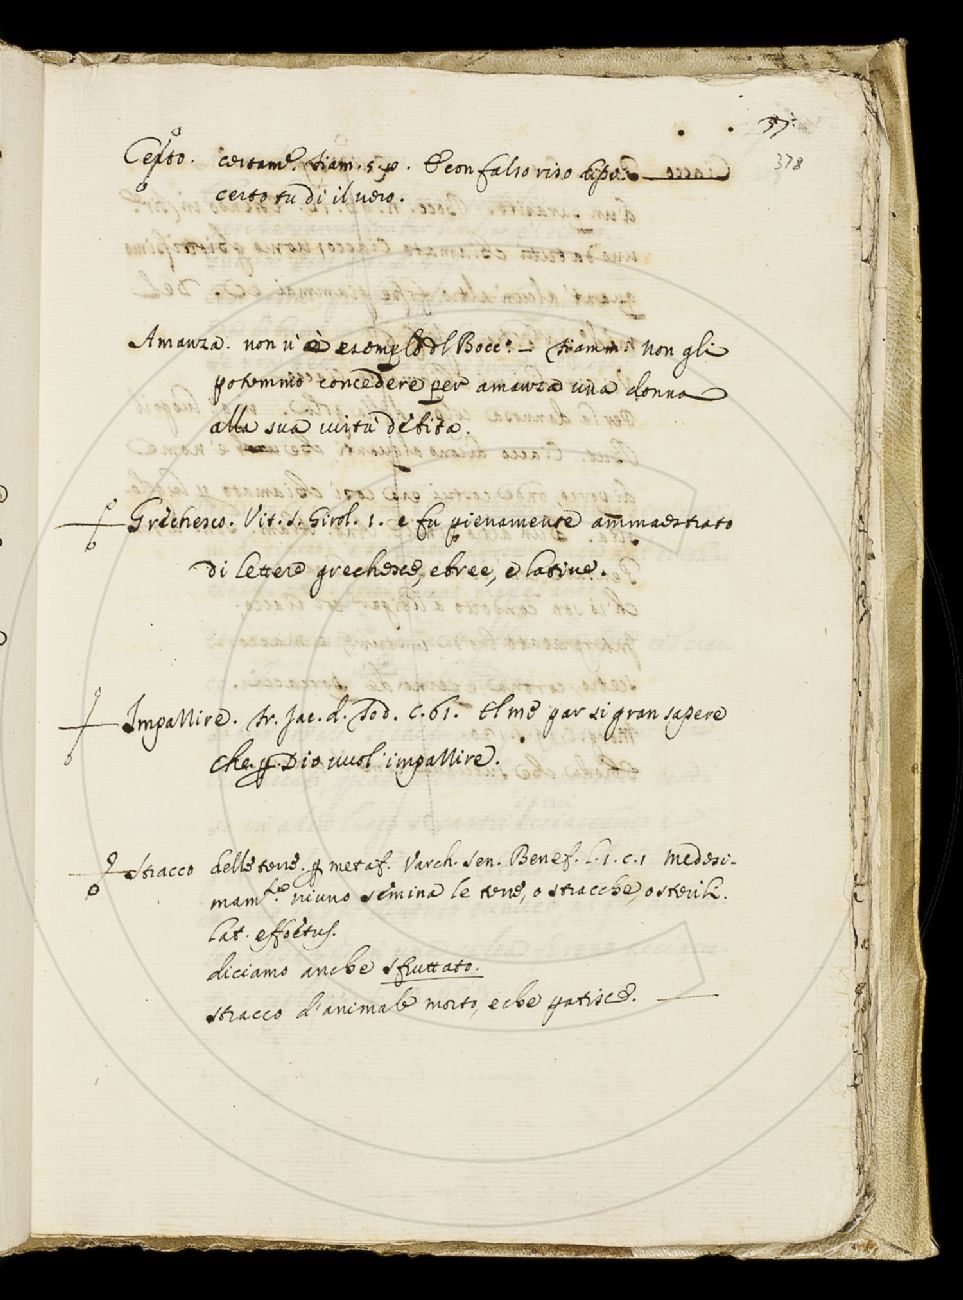 37.
378
Certo. certam.e fiam. 5. p. E con falso riso disse
certo tu di il vero.
Amanza. non v'è esemplo del Bocc.o - fiamm: Non gli
potemmo concedere per amanza una donna
alla sua virtù debita.
Grechesco. Vit. S. Girol. 1. e fu pienamente ammaestrato
di lettere grechesce, ebree, e latine.
Impallire. fr. Jac. d. Tod. C. 61. El me par sì gran sapere
che p Dio vuol impallire.
Stracco delle terre. p metaf. Varch. Sen. Benef. L. 1. c. 1 Medesi-
mam.te niuno semina le terre, o stracche, o sterili.
Lat. effoetus.
diciamo anche sfruttato.
stracco d'animale morto, e che patisce.